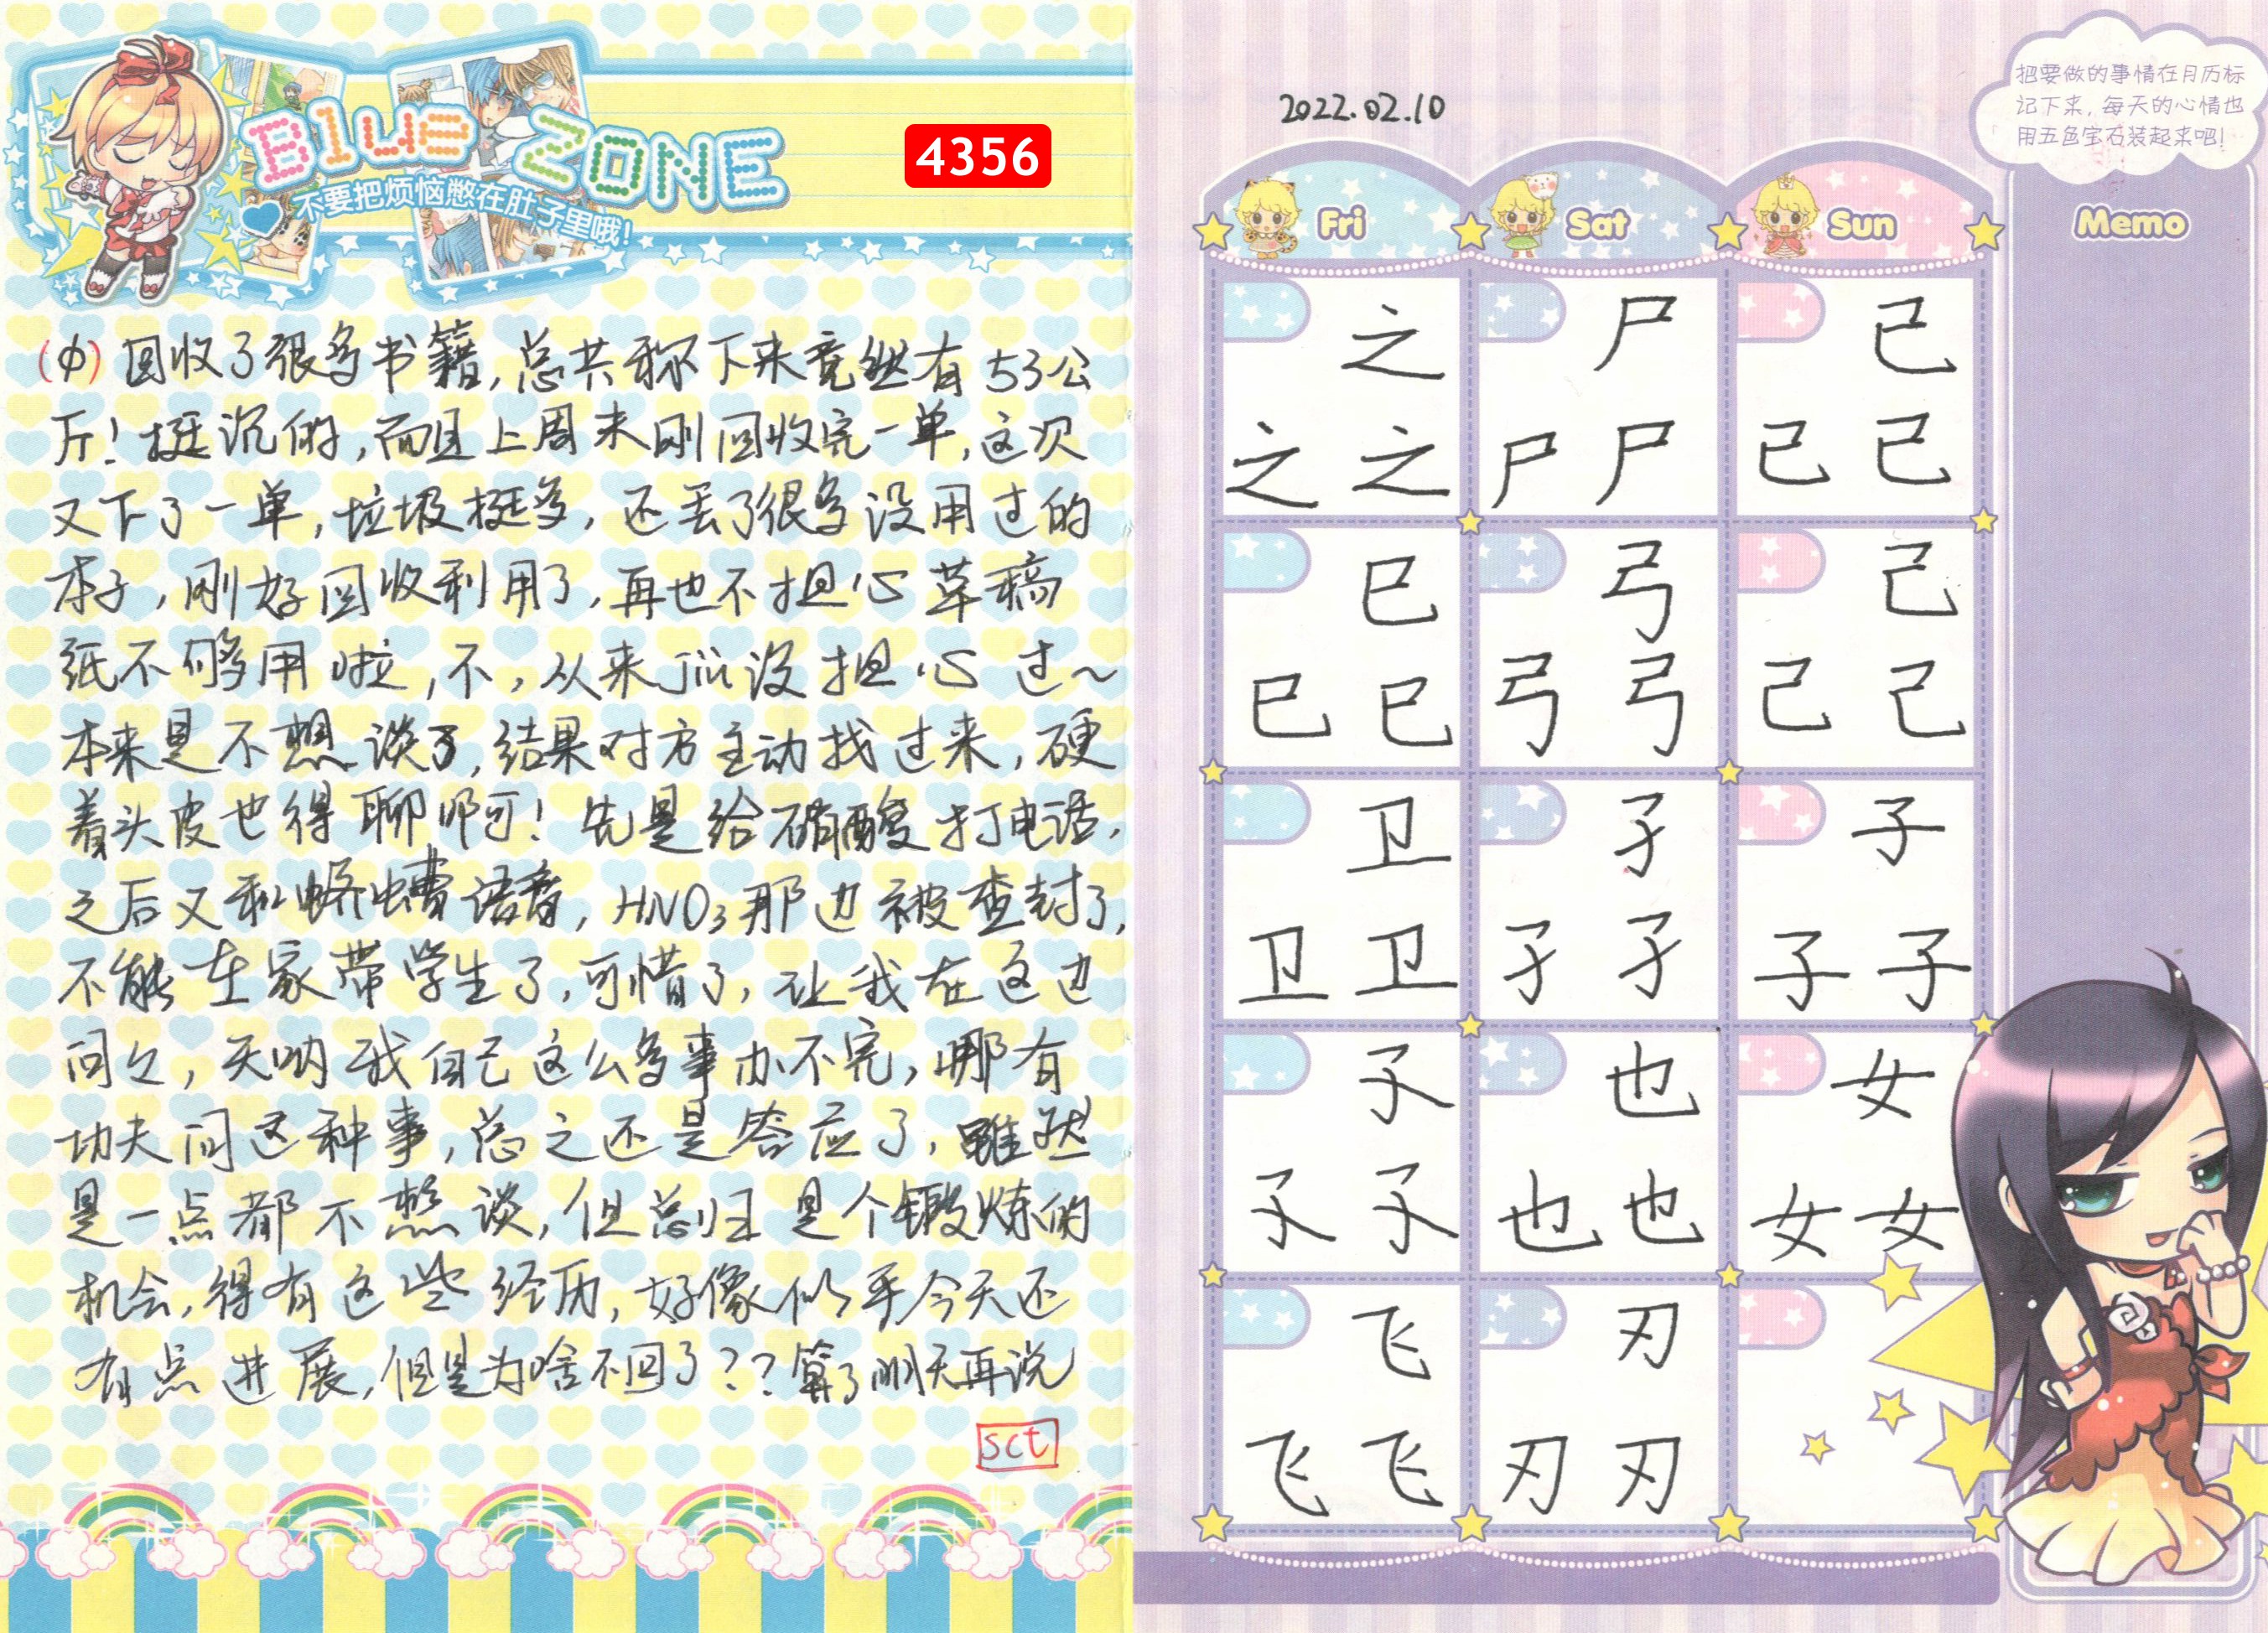 Blue ZONE
不要把烦恼憋在肚子里哦!
4356
(中) 回收了很多书籍,总共称下来竟然有53公
斤!挺沉的,而且上周末刚回收完一单,这次
又下了一单,垃圾挺多,还丢了很多没用过的
本子,刚好回收利用了,再也不担心草稿
纸不够用啦,不,从来就没担心过~
本来是不想谈了,结果对方主动找过来,硬
着头皮也得聊啊!先是给硝酸打电话,
之后又和蛴螬语音,HNO₃那边被查封了,
不能在家带学生了,可惜了,让我在这边
问问,天呐我自己这么多事办不完,哪有
功夫问这种事,总之还是答应了,虽然
是一点都不想谈,但总归是个锻炼的
机会,得有这些经历,好像似乎今天还
有点进展,但是为啥不回了??算了明天再说
sct
2022.02.10
把要做的事情在月历标
记下来,每天的心情也
用五色宝石装起来吧!
Fri Sat Sun Memo
之 尸 已
之 之 尸 尸 已 已
巳 弓 己
巳 巳 弓 弓 己 己
卫 孑 子
卫 卫 孑 孑 子 子
孓 也 女
孓 孓 也 也 女 女
飞 刃
飞 飞 刃 刃